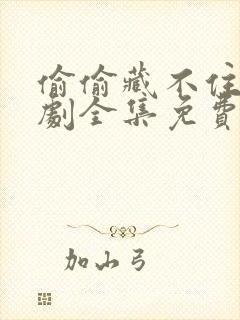 偷偷藏不住
劇全集免費
加山弓